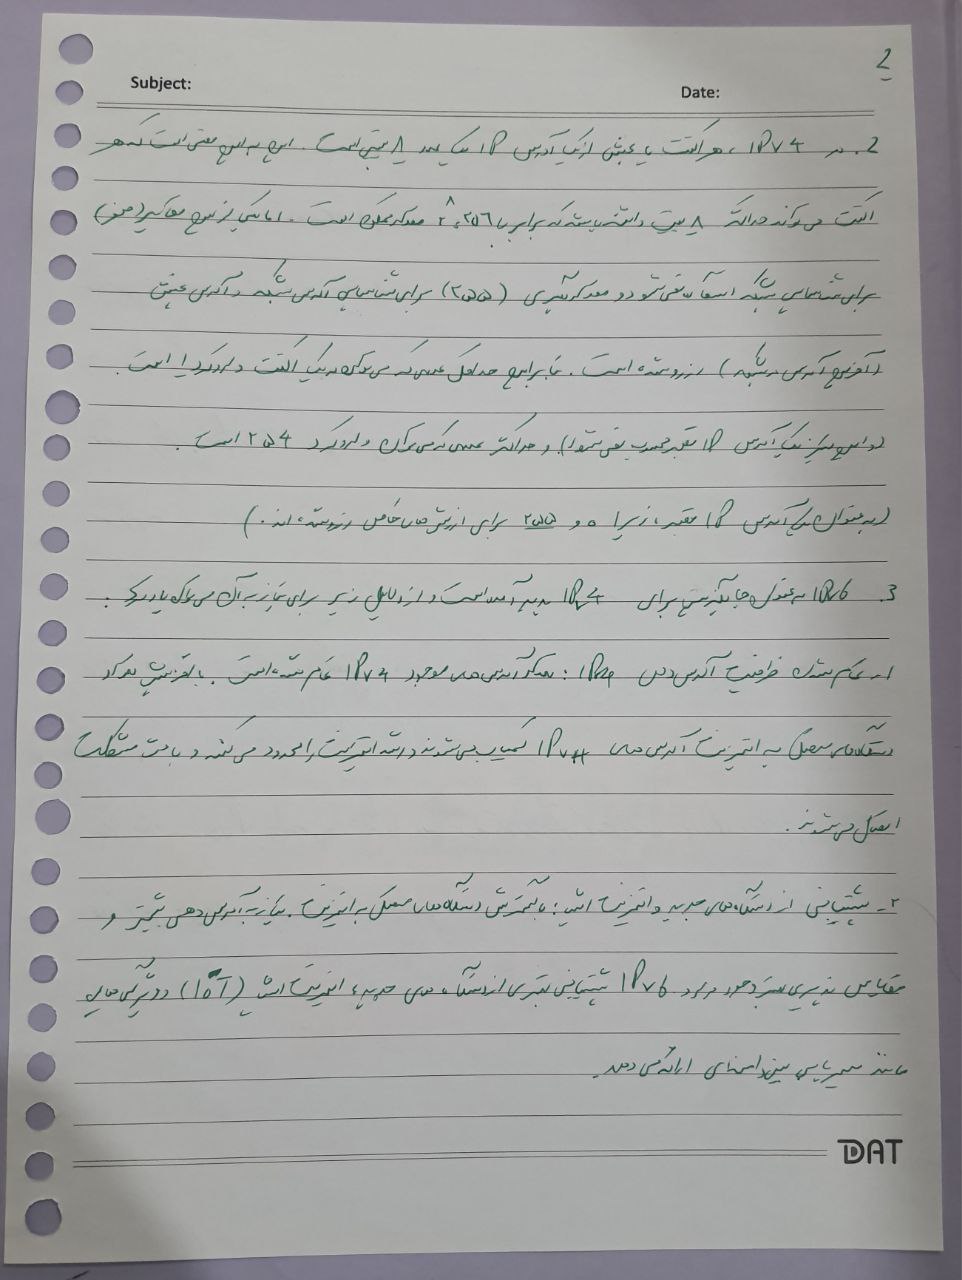 2
Subject: Date:
2. در IPv4، هر اکتت یا بخش از یک آدرس IP یک عدد 8 بیتی است. این به این معنی است که هر
اکتت می‌تواند حداکثر 8 بیت داشته باشد که برابر با ۲۵۶ = ۲^۸ مقدار ممکن است. اما یکی از این مقادیر (صفر)
برای شناسایی شبکه استفاده نمی‌شود و مقدار دیگری (۲۵۵) برای شناسایی آدرس شبکه و آدرس
(آخرین آدرس در شبکه) رزرو شده است. بنابراین حداقل عددی که می‌توان در یک اکتت وارد کرد 1 است.
IP معتبر محسوب نمی‌شود) و حداکثر عددی که می‌توان وارد کرد ۲۵۴ است.
(به عنوان یک آدرس IP معتبر، زیرا ۰ و ۲۵۵ برای ارزش‌های خاص رزرو شده‌اند.)
3. IPv6 به عنوان جایگزینی برای IPv4 پدید آمده است و از دلایل زیر برای نیاز به آن می‌توان یاد کرد:
۱- تمام شدن ظرفیت آدرس‌دهی IPv4: تعداد آدرس‌های موجود IPv4 تمام شده است. با افزایش تعداد
دستگاه‌های متصل به اینترنت آدرس‌های IPv4 کمیاب می‌شوند و رشد اینترنت را محدود می‌کند و باعث مشکلات
اتصال می‌شوند.
۲- پشتیبانی از دستگاه‌های جدید و اینترنت اشیا: با گسترش دستگاه‌های متصل به اینترنت. نیاز به آدرس‌دهی بیشتر و
مقیاس پذیری بهتر وجود دارد IPv6 پشتیبانی بهتری از دستگاه‌های جدید، اینترنت اشیا (IoT) و ویژگی‌هایی
مانند مسیریابی ارائه می‌دهد.
DAT